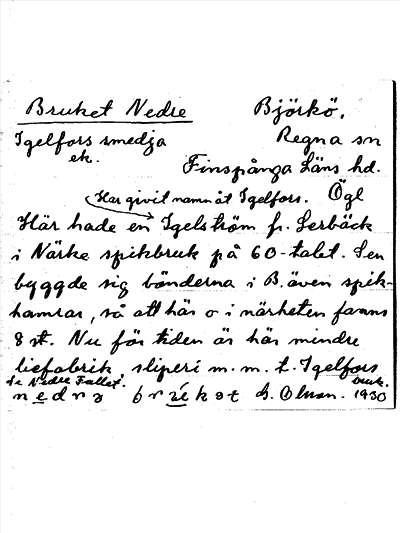 Bruket Nedre Björkö,
Igelfors smedja Regna sn
ek. Finspånga Läns hd.
(Har givit namn åt Igelfors. Ögl
Här hade en Igelström fr. Lerbäck
i Närke spikbruk på 60-talet. Sen
byggde sig bönderna i B. även spik-
hamrar, så att här o i närheten fanns
8 st. Nu för tiden är här mindre
liefabrik, sliperi m. m. t. Igelfors
Se Nedre Fallet. bruk.
nedrə brʉ́kət G. Olson. 1930